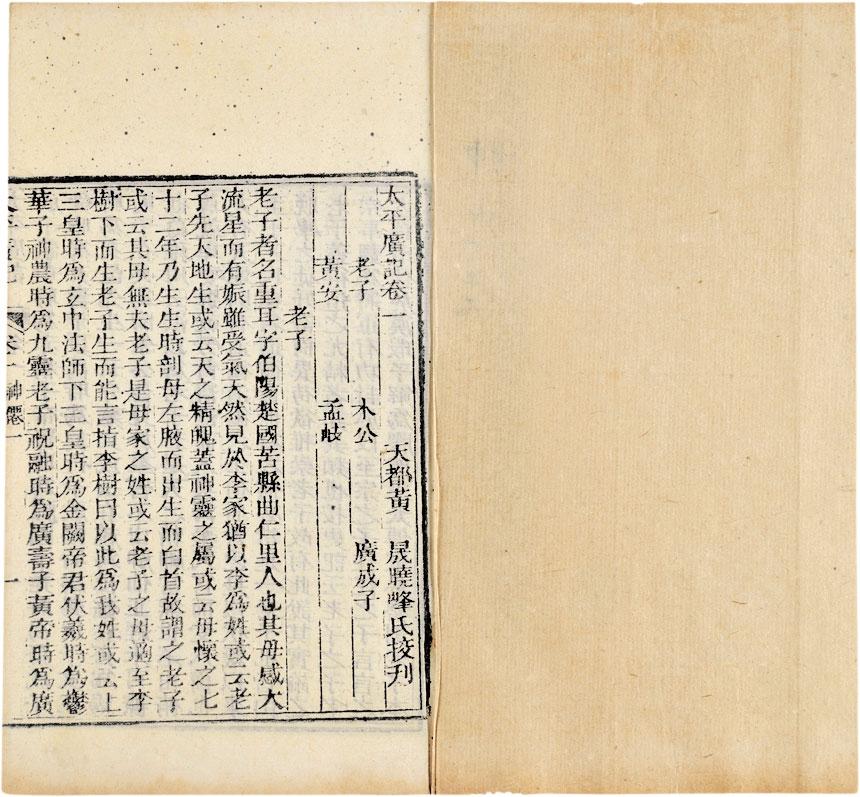 太平廣記卷一
天都黃 晟曉峰氏挍刋
老子 木公 廣成子
黃安 孟岐
老子
老子者名重耳字伯陽楚國苦縣曲仁里人也其母感大
流星而有娠雖受氣天然見於李家猶以李爲姓或云老
子先天地生或云天之精魄蓋神靈之屬或云母懷之七
十二年乃生生時剖母左腋而出生而白首故謂之老子
或云其母無夫老子是母家之姓或云老子之母適至李
樹下而生老子生而能言指李樹曰以此爲我姓或云上
三皇時爲玄中法師下三皇時爲金闕帝君伏羲時爲鬱
華子神農時爲九靈老子祝融時爲廣壽子黃帝時爲廣
太平廣記 卷一 神僊一 一